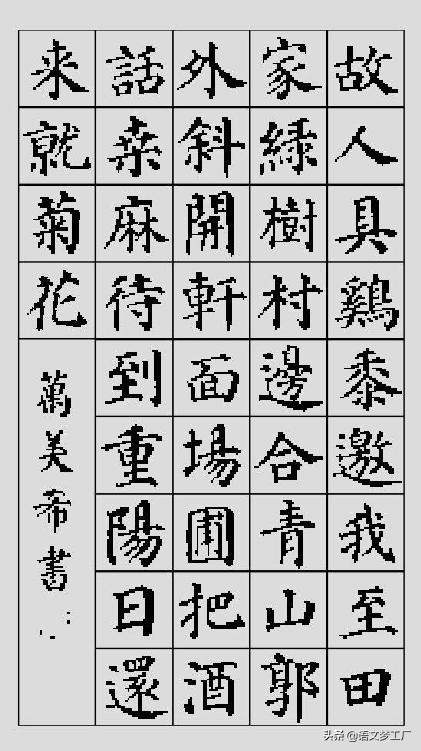 故人具鷄黍邀我至田
家綠樹村邊合青山郭
外斜開軒面場圃把酒
話桒麻待到重陽日還
来就菊花
萬美希書
头条 @语文梦工厂